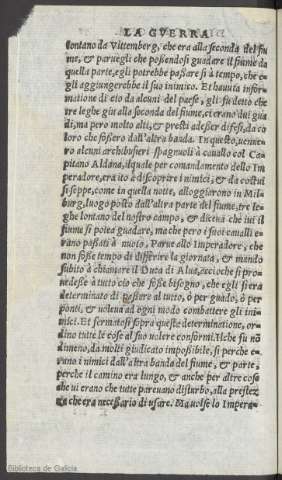 LA GVERRA
lontano da Vittemberg, che era alla seconda del fiu
me, & paruegli che possendosi guadare il fiume da
quella parte, egli potrebbe passare si à tempo, che e-
gli aggiungerebbe il suo inimico. Et hauuta infor-
matione di cio da alcuni del paese, gli fu detto che
tre leghe giu alla seconda del fiume, ci erano dui gua
di, ma pero molto alti, & presti ad esser difesi, da co
loro che fossero dall'altra banda. In questo, uenne-
ro alcuni archibusieri spagnuoli à cauallo col Ca-
pitano Aldana, il quale per comandamento dello Im
peradore, era ito à discoprire i nimici, & da costui
si seppe, come in quella notte, alloggiarono in Mil-
burg, luogo posto dall'altra parte del fiume, tre le-
ghe lontano del nostro campo, & diceua che iui il
fiume si potea guadare, ma che pero i suoi caualli e-
rano passati à nuoto. Parue allo Imperadore, che
non fosse tempo di differire la giornata, & mandò
subito à chiamare il Duca di Alua, accioche si pro-
uedesse à tutto cio che fosse bisogno, che egli si era
determinato di passare al tutto, ò per guado, ò per
ponti, & uoleua ad ogni modo combattere gli ini-
mici. Et fermatosi sopra queste determinatione, or-
dino tutte le cose al suo uolere conformi. Ilche fu nõ
dimeno, da molti giudicato impossibile, si perche e-
rano i nimici dall'altra banda del fiume, & parte,
perche il camino era lungo, & anche per altre cose
che ui erano che tutte pareuano disturbo, alla prestez
za che era necessario di usare. Ma uolse lo Impera-
Biblioteca de Galicia